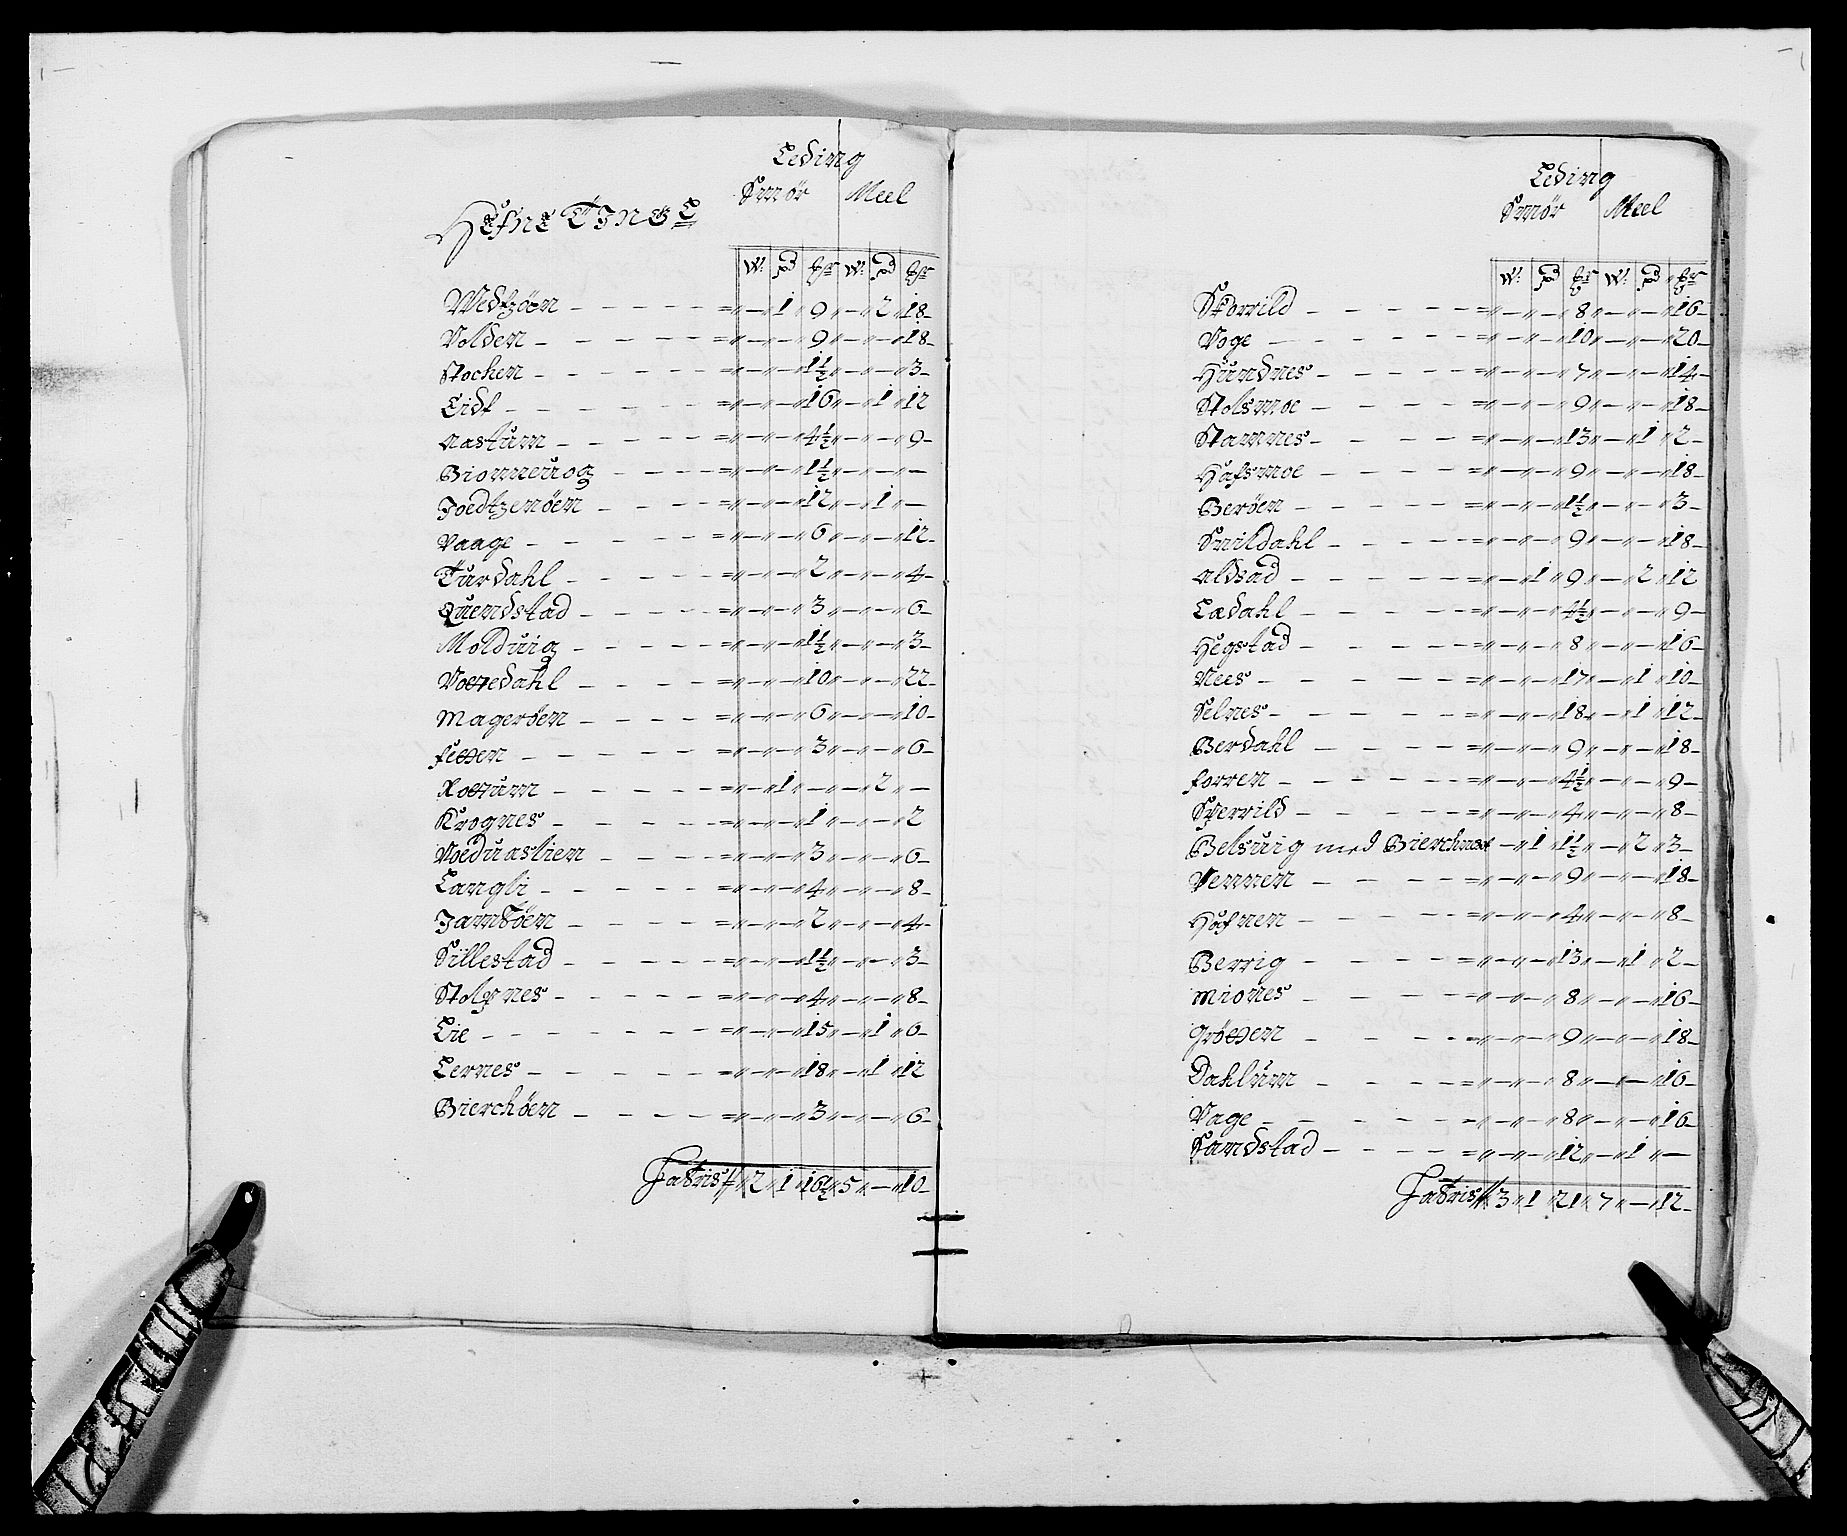 Leding
Smør Meel
Hefne Tinge
W: pd ℔r W: pd ℔r
Wedtzøen - - - - - = - 1 9 - 2 18 -
Volden - - - - - = - - 9 - - 18 -
Stochen - - - - - = - - 1½ - - 3 -
Eidt - - - - - - = - - 16 - 1 12
Nastum - - - - - = - - 4½ - - 9 -
Bionneuog - - - = - - 1½ - - -
Joedtzenøen - - - = - - 12 - 1 -
Vaage - - - - - = - - 6 - - 12 -
Turdahl - - - - - = - - 2 - - 4 -
Quendstad - - - - = - - 3 - - 6 -
Molduig - - - - = - - 1½ - - 3 -
Voettedahl - - - - = - - 10 - - 22 -
Magerøen - - - - = - - 6 - - 10 -
fetten - - - - - = - - 3 - - 6 -
Rottum - - - - - = - 1 - - 2 -
Krognes - - - - - = - - 1 - - 2
Voeduaslien - - - - = - - 3 - - 6 -
Langli - - - - - = - - 4 - - 8 -
Jamtøen - - - - = - - 2 - - 4 -
Sillestad - - - - = - - 1½ - - 3 -
Stolpnes - - - - - = - - 4 - - 8 -
Lie - - - - - - = - - 15 - 1 6 -
Lernes - - - - - = - - 18 - 1 12
Bierchøen - - - - = - - 3 - - 6 -
Latris 2 1 16½ 5 - 10 -
Leding
Smør Meel
W: pd ℔r W: pd ℔r
Skorrild - - - - = - - 8 - - 16 -
Voge - - - - - = - - 10 - - 20 -
Hundnes - - - - = - - 7 - - 14 -
Stolsmoe - - - - = - - 9 - - 18 -
Stamnes - - - - = - - 13 - 1 2 -
Hafsmoe - - - - = - - 9 - - 18 -
Berøen - - - - = - - 1½ - - 3 -
Snildahl - - - - = - - 9 - - 18 -
Aldsad - - - - = - 1 9 - 2 12
Lædahl - - - - = - - 4½ - - 9 -
Hegstad - - - - = - - 8 - - 16 -
Nees - - - - - = - - 17 - 1 10 -
Selnes - - - - = - - 18 - 1 12 -
Berdahl - - - - = - - 9 - - 18 -
forren - - - - - = - - 4½ - - 9 -
Sperrild - - - - = - - 4 - - 8 -
Belsuig med Bierchnes - 1 1½ - 2 3 -
Vennen - - - - = - - 9 - - 18 -
Hofnen - - - - = - - 4 - - 8 -
Berrig - - - - = - - 13 - 1 2 -
Miones - - - - = - - 8 - - 16 -
Grøtten - - - - = - - 9 - - 18 -
Dahlum - - - - = - - 8 - - 16 -
Vage - - - - - = - - 8 - - 16 -
Sandstad - - - - = - - 12 - 1 -
Latris 3 1 21 7 - 12 -